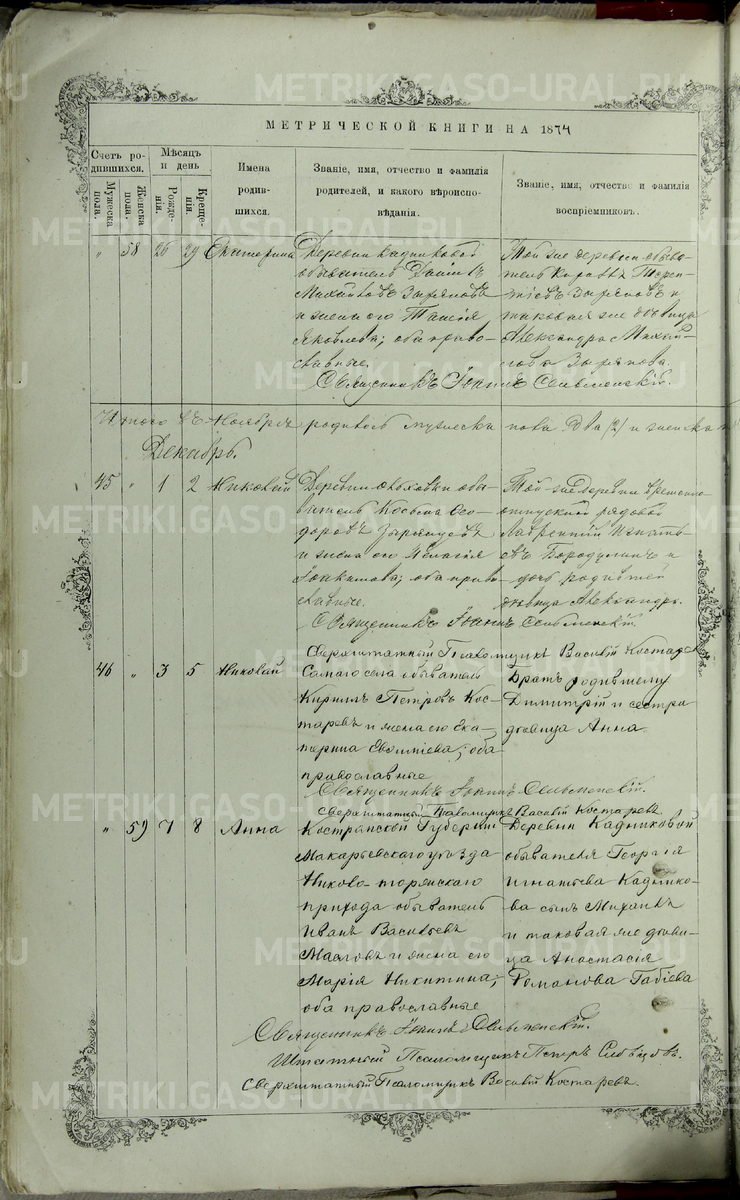 МЕТРИЧЕСКОЙ КНИГИ НА 1874
Счетъ родившихся.
Мужеска пола.
Женска пола.
Мѣсяцъ и день
Рожденія.
Крещенія.
Имена родившихся.
Званіе, имя, отчество и фамилія родителей, и какого вѣроисповѣданія.
Званіе, имя, отчество и фамилія воспріемниковъ.
" 58 26 29 Екатерина
Деревни Кадниковой
обыватель
Михайловъ Зыряновъ
и жена его Таисія
Яковлева; оба право-
славные.
Той же деревни обыва-
тель
Зыряновъ и
таковая же дѣвица
Александра Михай-
лова Зырянова.
Священникъ Іоаннъ
Итого въ Ноябрѣ родилось мужеска пола два (2) и женска
Декабрь.
45 " 1 2 Николай
Деревни обы-
ватель Косьма Ѳео-
доровъ Зырянцевъ
и жена его Пелагія
Іоакимова; оба право-
славные.
Той же деревни временно-
отпускной рядовой
Лаврентій Игнать-
евъ Бородулинъ и
дочь родившей
дѣвица Александра.
Священникъ Іоаннъ
Сверхштатный Псаломщикъ Василій Костаревъ
46 " 3 5 Николай
Самаго села обыватель
Кириллъ Петровъ Кос-
таревъ и жена его Ека-
терина Евѳиміева; оба
православные
Братъ родившему
Димитрій и сестра
дѣвица Анна
Священникъ Іоаннъ
Сверхштатный Псаломщикъ Василій Костаревъ
" 59 7 8 Анна
Костромской Губерніи
Макарьевскаго уѣзда
Николо-торжскаго
прихода обыватель
Иванъ Васильевъ
Масловъ и жена его
Марія Никитина;
оба православные
Деревни Кадниковой
обывателя Георгія
Игнатьева Каднико-
ва сынъ Михаилъ
и таковая же дѣви-
ца Анастасія
Романова Габіева
Священникъ Іоаннъ
Штатный Псаломщикъ Петръ
Сверхштатный Псаломщикъ Василій Костаревъ
METRIKI.GASO-URAL.RU